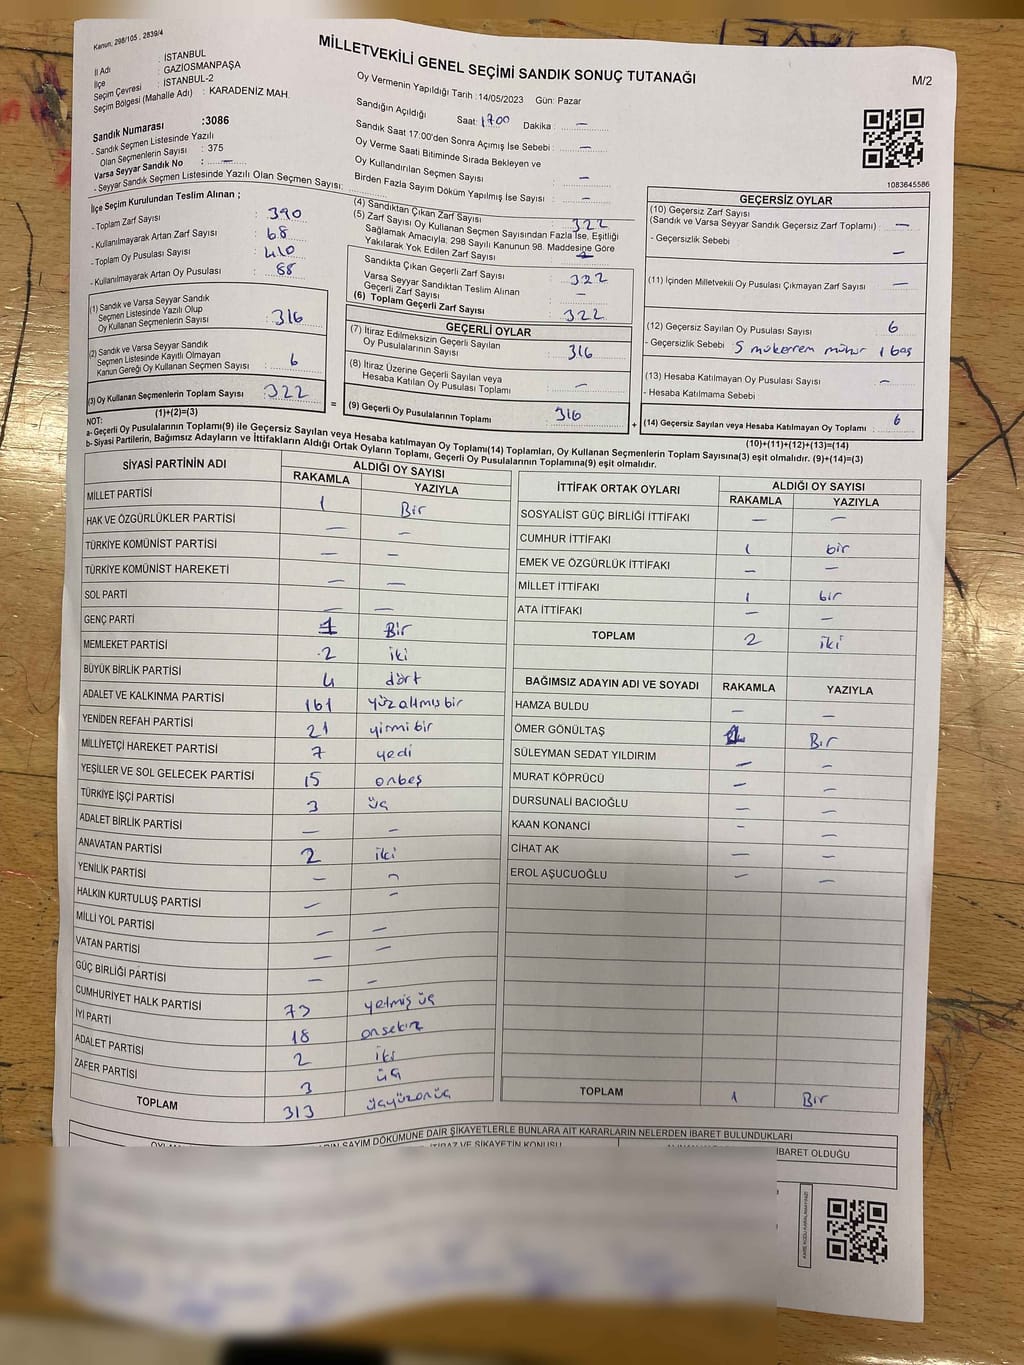 Kanun, 298/105 , 2839/4
MİLLETVEKİLİ GENEL SEÇİMİ SANDIK SONUÇ TUTANAĞI
M/2
İl Adı : İSTANBUL
İlçe : GAZİOSMANPAŞA
Seçim Çevresi : İSTANBUL-2
Seçim Bölgesi (Mahalle Adı) : KARADENİZ MAH.
Sandık Numarası :3086
- Sandık Seçmen Listesinde Yazılı
Olan Seçmenlerin Sayısı : 375
Varsa Seyyar Sandık No : —
- Seyyar Sandık Seçmen Listesinde Yazılı Olan Seçmen Sayısı:
Oy Vermenin Yapıldığı Tarih :14/05/2023 Gün: Pazar
Sandığın Açıldığı Saat: 1700 Dakika : —
Sandık Saat 17:00'den Sonra Açımış İse Sebebi : —
Oy Verme Saati Bitiminde Sırada Bekleyen ve
Oy Kullandırılan Seçmen Sayısı : —
Birden Fazla Sayım Döküm Yapılmış İse Sayısı : —
1083645586
İlçe Seçim Kurulundan Teslim Alınan ;
- Toplam Zarf Sayısı : 390
- Kullanılmayarak Artan Zarf Sayısı : 68
- Toplam Oy Pusulası Sayısı : 410
- Kullanılmayarak Artan Oy Pusulası : 88
(1) Sandık ve Varsa Seyyar Sandık
Seçmen Listesinde Yazılı Olup
Oy Kullanan Seçmenlerin Sayısı : 316
(2) Sandık ve Varsa Seyyar Sandık
Seçmen Listesinde Kayıtlı Olmayan
Kanun Gereği Oy Kullanan Seçmen Sayısı : 6
(3) Oy Kullanan Seçmenlerin Toplam Sayısı : 322
(1)+(2)=(3)
(4) Sandıktan Çıkan Zarf Sayısı : 322
(5) Zarf Sayısı Oy Kullanan Seçmen Sayısından Fazla İse, Eşitliği
Sağlamak Amacıyla, 298 Sayılı Kanunun 98. Maddesine Göre
Yakılarak Yok Edilen Zarf Sayısı :
Sandıkta Çıkan Geçerli Zarf Sayısı : 322
Varsa Seyyar Sandıktan Teslim Alınan
Geçerli Zarf Sayısı : —
(6) Toplam Geçerli Zarf Sayısı : 322
GEÇERLİ OYLAR
(7) İtiraz Edilmeksizin Geçerli Sayılan
Oy Pusulalarının Sayısı : 316
(8) İtiraz Üzerine Geçerli Sayılan veya
Hesaba Katılan Oy Pusulası Toplamı : —
= (9) Geçerli Oy Pusulalarının Toplamı : 316 +
GEÇERSİZ OYLAR
(10) Geçersiz Zarf Sayısı
(Sandık ve Varsa Seyyar Sandık Geçersiz Zarf Toplamı) : —
- Geçersizlik Sebebi —
(11) İçinden Milletvekili Oy Pusulası Çıkmayan Zarf Sayısı : —
(12) Geçersiz Sayılan Oy Pusulası Sayısı : 6
- Geçersizlik Sebebi : 5 mükerrem mühür 1 boş
(13) Hesaba Katılmayan Oy Pusulası Sayısı : —
- Hesaba Katılmama Sebebi
(14) Geçersiz Sayılan veya Hesaba Katılmayan Oy Toplamı : 6
(10)+(11)+(12)+(13)=(14)
NOT:
a- Geçerli Oy Pusulalarının Toplamı(9) ile Geçersiz Sayılan veya Hesaba katılmayan Oy Toplamı(14) Toplamları, Oy Kullanan Seçmenlerin Toplam Sayısına(3) eşit olmalıdır. (9)+(14)=(3)
b- Siyasi Partilerin, Bağımsız Adayların ve İttifakların Aldığı Ortak Oyların Toplamı, Geçerli Oy Pusulalarının Toplamına(9) eşit olmalıdır.
SİYASİ PARTİNİN ADI ALDIĞI OY SAYISI
RAKAMLA YAZIYLA
MİLLET PARTİSİ 1 Bir
HAK VE ÖZGÜRLÜKLER PARTİSİ — —
TÜRKİYE KOMÜNİST PARTİSİ — —
TÜRKİYE KOMÜNİST HAREKETİ — —
SOL PARTİ — —
GENÇ PARTİ 1 Bir
MEMLEKET PARTİSİ 2 iki
BÜYÜK BİRLİK PARTİSİ 4 dört
ADALET VE KALKINMA PARTİSİ 161 yüzaltmışbir
YENİDEN REFAH PARTİSİ 21 yirmibir
MİLLİYETÇİ HAREKET PARTİSİ 7 yedi
YEŞİLLER VE SOL GELECEK PARTİSİ 15 onbeş
TÜRKİYE İŞÇİ PARTİSİ 3 üç
ADALET BİRLİK PARTİSİ — —
ANAVATAN PARTİSİ 2 iki
YENİLİK PARTİSİ — —
HALKIN KURTULUŞ PARTİSİ — —
MİLLİ YOL PARTİSİ — —
VATAN PARTİSİ — —
GÜÇ BİRLİĞİ PARTİSİ — —
CUMHURİYET HALK PARTİSİ 73 yetmiş üç
İYİ PARTİ 18 onsekiz
ADALET PARTİSİ 2 iki
ZAFER PARTİSİ 3 üç
TOPLAM 313 üçyüzonüç
İTTİFAK ORTAK OYLARI ALDIĞI OY SAYISI
RAKAMLA YAZIYLA
SOSYALİST GÜÇ BİRLİĞİ İTTİFAKI — —
CUMHUR İTTİFAKI 1 bir
EMEK VE ÖZGÜRLÜK İTTİFAKI — —
MİLLET İTTİFAKI 1 bir
ATA İTTİFAKI — —
TOPLAM 2 iki
BAĞIMSIZ ADAYIN ADI VE SOYADI RAKAMLA YAZIYLA
HAMZA BULDU — —
ÖMER GÖNÜLTAŞ 1 Bir
SÜLEYMAN SEDAT YILDIRIM — —
MURAT KÖPRÜCÜ — —
DURSUNALİ BACIOĞLU — —
KAAN KONANCİ — —
CİHAT AK — —
EROL AŞUCUOĞLU — —
TOPLAM 1 Bir
SAYIM DÖKÜMÜNE DAİR ŞİKAYETLERLE BUNLARA AİT KARARLARIN NELERDEN İBARET BULUNDUKLARI
İTİRAZ VE ŞİKAYETİN KONUSU
İBARET OLDUĞU